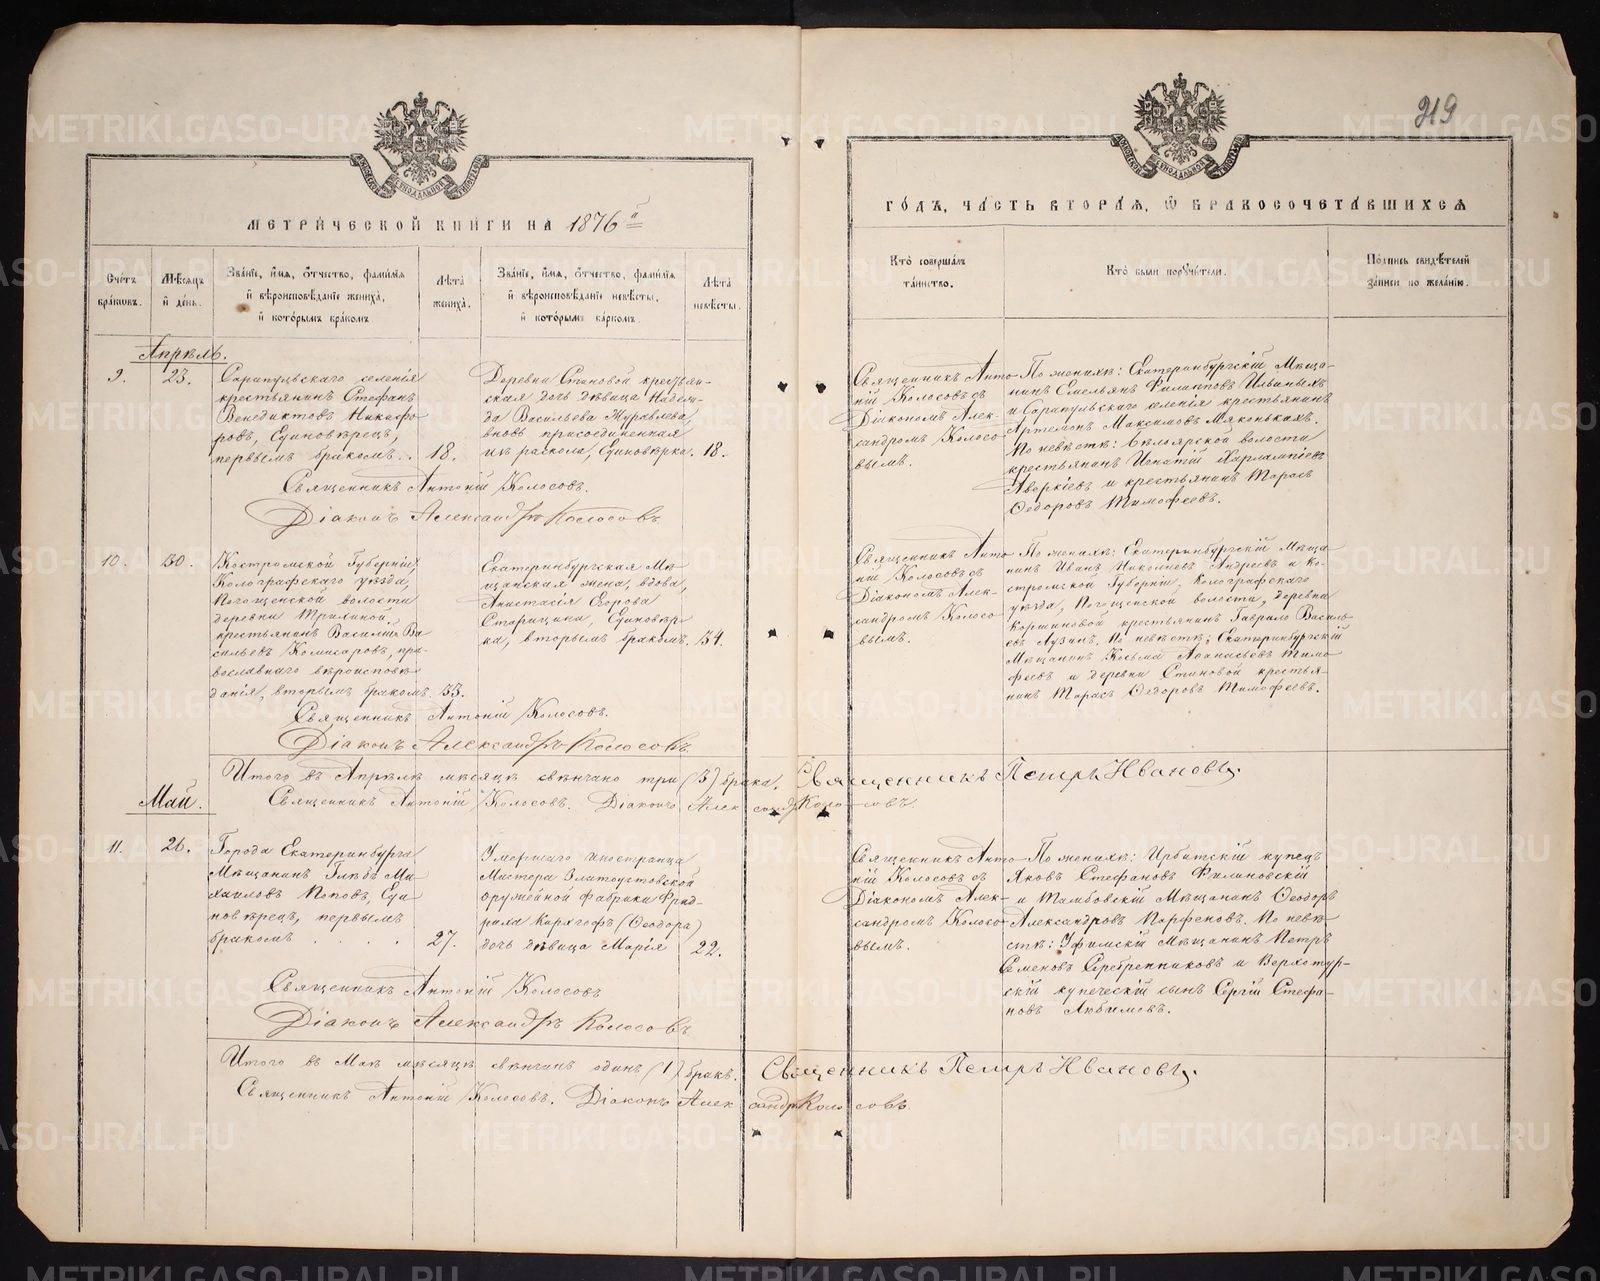 319
МЕТРИЧЕСКОЙ КНИГИ НА 1876й
ГОДЪ, ЧАСТЬ ВТОРАЯ, Ѡ БРАКОСОЧЕТАВШИХСЯ
Счетъ браковъ.
Мѣсяцъ и день.
Званіе, имя, отчество, фамилія
и вѣроисповѣданіе жениха,
и которымъ бракомъ
Лѣта жениха.
Званіе, имя, отчество, фамилія
и вѣроисповѣданіе невѣсты,
и которымъ бракомъ.
Лѣта невѣсты.
Кто совершалъ
таинство.
Кто были поручители.
Подпись свидѣтелей
записи по желанію.
Апрѣль.
9.
23.
Сарапульскаго селенія
крестьянинъ Стефанъ
Венедиктовъ Никифо-
ровъ, Единовѣрецъ,
первымъ бракомъ.
18.
Деревни Становой крестьян-
ская дочь дѣвица Надеж-
да Васильева Журавлева,
вновь присоединенная
изъ раскола, Единовѣрка.
18.
Священникъ Анто-
ній Колосовъ съ
Діакономъ Алек-
сандромъ Колосо-
вымъ.
По женихѣ: Екатеринбургскій Мѣща-
нинъ Емельянъ Филипповъ Ильиныхъ
и Сарапульскаго селенія крестьянинъ
Артемонъ Максимовъ Мяконькахъ.
По невѣстѣ: Бѣлоярской волости
крестьянинъ Игнатій Харлампіевъ
Аверкіевъ и крестьянинъ Тарасъ
Ѳедоровъ Тимофеевъ.
Священникъ Антоній Колосовъ.
Діаконъ Александръ Колосовъ.
10.
30.
Костромской Губерніи,
Кологрифскаго уѣзда,
деревни
крестьянинъ Василій Ва-
сильевъ Комисаровъ, пра-
вославнаго вѣроисповѣ-
данія, вторымъ бракомъ
33.
Екатеринбургская Мѣ-
щанская жена, вдова,
Анастасія Егорова
Старицина, Единовѣр-
ка, вторымъ бракомъ.
34.
Священникъ Анто-
ній Колосовъ съ
Діакономъ Алек-
сандромъ Колосо-
вымъ.
По женихѣ: Екатеринбургскій Мѣща-
нинъ Иванъ Николаевъ Андреевъ и Ко-
стромской Губерніи, Кологрифскаго
уѣзда, волости, деревни
Коршиновой крестьянинъ Гаврило Василь-
евъ Лузинъ. По невѣстѣ: Екатеринбургскій
Мѣщанинъ Козьма Аѳанасьевъ Тимо-
феевъ и деревни Становой крестья-
нинъ Тарасъ Ѳедоровъ Тимофеевъ.
Священникъ Антоній Колосовъ.
Діаконъ Александръ Колосовъ.
Итого въ Апрѣлѣ мѣсяцѣ вѣнчано три (3) брака. Священникъ Петръ Ивановъ.
Священникъ Антоній Колосовъ. Діаконъ Александръ Колосовъ.
Май.
11.
26.
Города Екатеринбурга
Мѣщанинъ Глѣбъ Ми-
хаиловъ Поповъ, Еди-
новѣрецъ, первымъ
бракомъ . . . .
27.
Умершаго иностранца
Мастера Златоустовской
оружейной фабрики Фрид-
риха Кирхгофъ (Ѳеодора)
дочь дѣвица Марія
22.
Священникъ Анто-
ній Колосовъ съ
Діакономъ Алек-
сандромъ Колосо-
вымъ.
По женихѣ: Ирбитскій купецъ
Яковъ Стефановъ Филиновскій
и Тамбовскій Мѣщанинъ Ѳеодоръ
Александровъ Парфеновъ. По невѣ-
стѣ: Уфимскій Мѣщанинъ Петръ
Семеновъ Серебренниковъ и Верхотур-
скій купеческій сынъ Сергій Стефа-
новъ Любимовъ.
Священникъ Антоній Колосовъ
Діаконъ Александръ Колосовъ.
Итого въ Маѣ мѣсяцѣ вѣнчанъ одинъ (1) бракъ. Священникъ Петръ Ивановъ.
Священникъ Антоній Колосовъ. Діаконъ Александръ Колосовъ.
METRIKI.GASO-URAL.RU